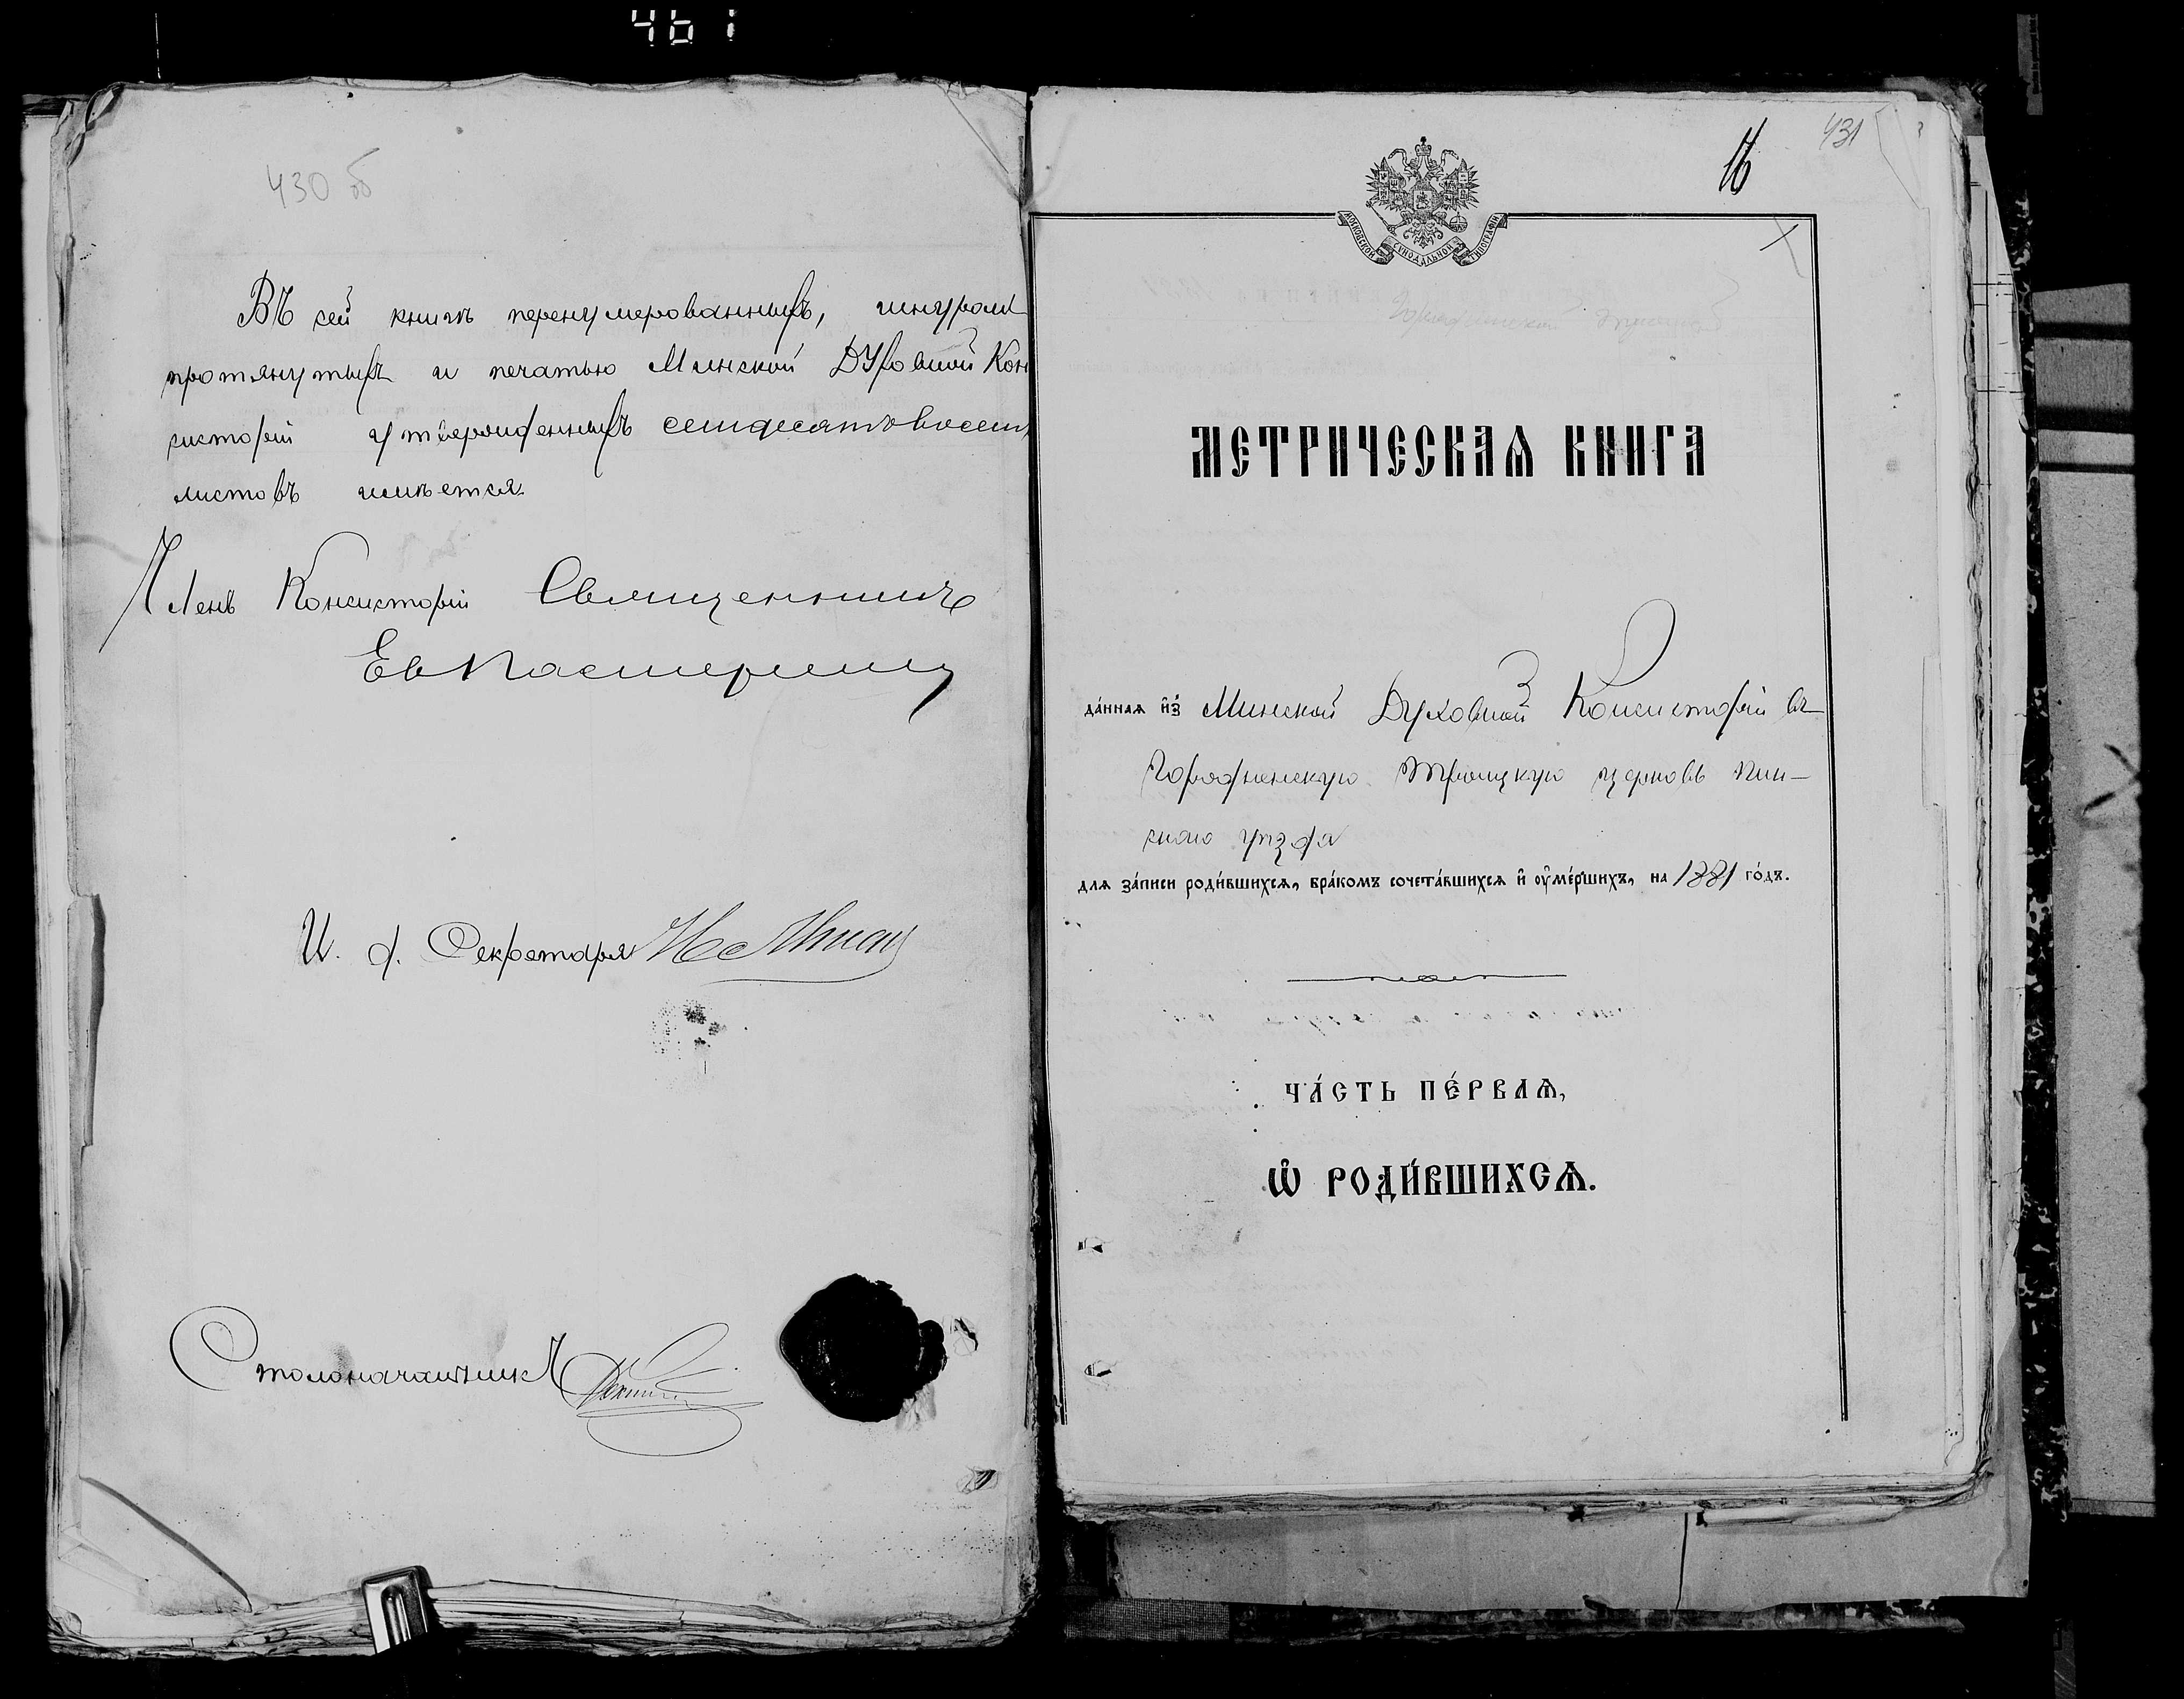 461
430 об
Въ сей книгѣ перенумерованныхъ, шнуромъ
протянутыхъ и печатью Минской Духовной Кон
систоріи утвержденныхъ семидесятъ восемь
листовъ имѣется.
Членъ Консисторіи Священникъ
И. д. Секретаря
Столоначальникъ
431
16
МОСКОВСКОЙ СѴНОДАЛЬНОЙ ТИПОГРАФІИ
МЕТРИЧЕСКАѦ КНИГА
да́ннаѧ и҆з̾ Минской Духовной Консисторіи въ
Городненскую Троицкую церковь Пин-
скаго уѣзда
длѧ за́писи роди́вшихсѧ, бра́комъ сочета́вшихсѧ и҆ ᲂу҆ме́ршихъ, на 1881 го́дъ.
ЧА́СТЬ ПЕ́РВАѦ,
Ѡ҆ РОДИ́ВШИХСѦ.